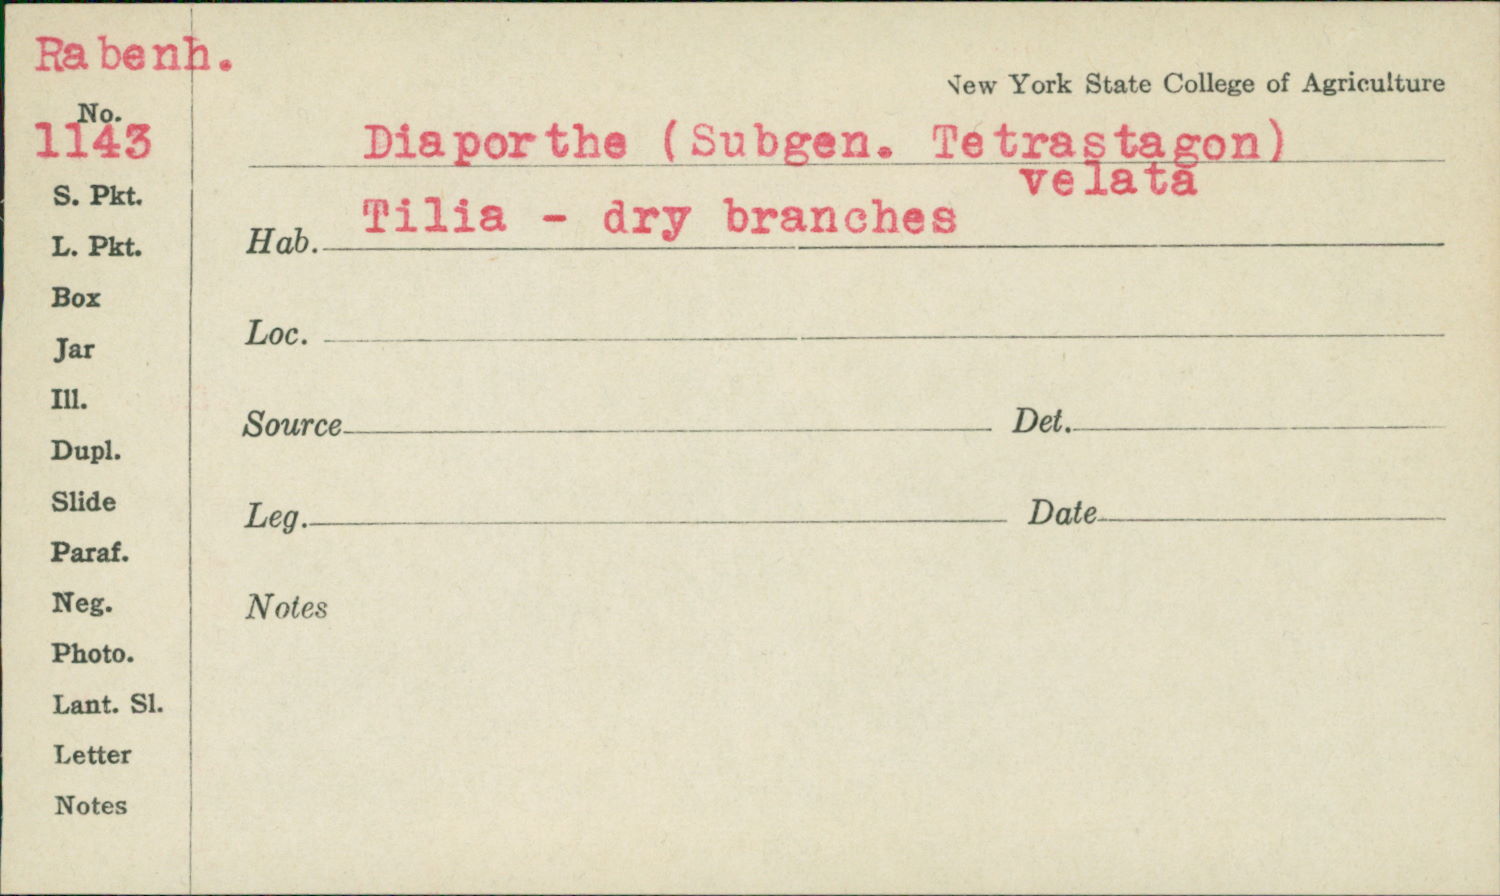 Rabenh.
New York State College of Agriculture
No.
1143
Diaporthe (Subgen. Tetrastagon)
velata
S. Pkt.
Hab. Tilia - dry branches
L. Pkt.
Box
Loc.
Jar
Ill.
Source Det.
Dupl.
Slide
Leg. Date
Paraf.
Neg.
Notes
Photo.
Lant. Sl.
Letter
Notes